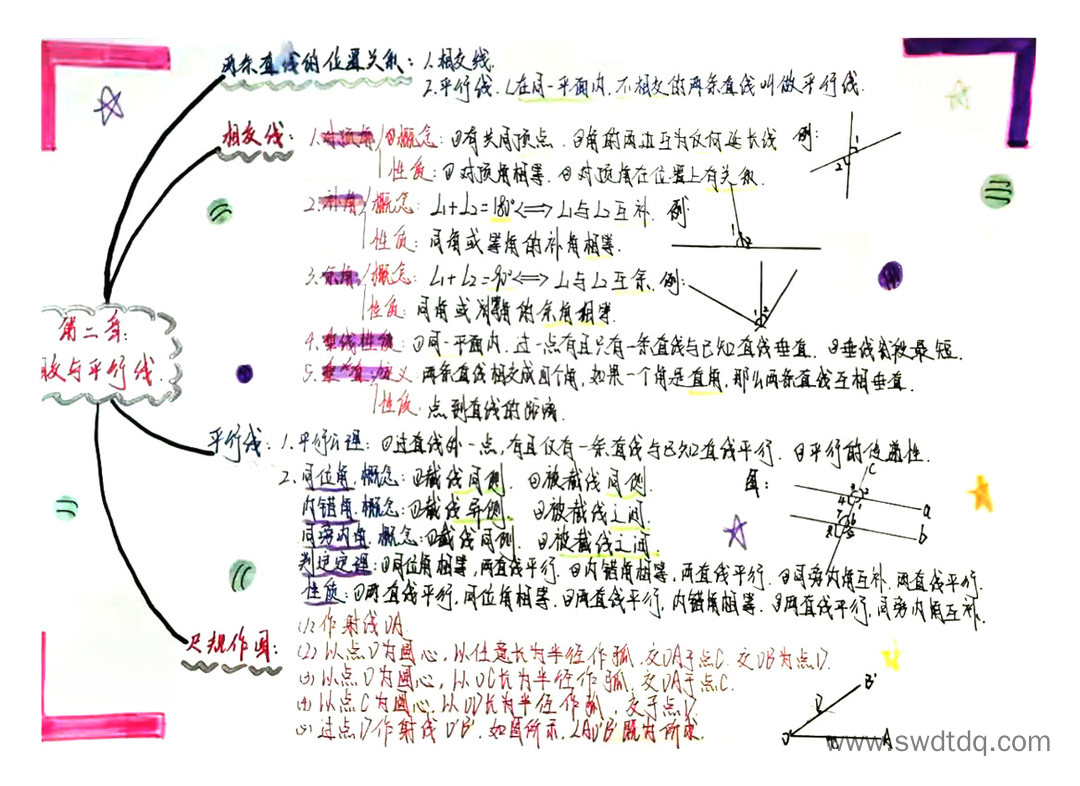 两条直线的位置关系：1.相交线.
2.平行线.在同一平面内.不相交的两条直线叫做平行线.
相交线： 1.对顶角 概念：①有共同顶点. ②角的两边互为反向延长线 例：
性质：①对顶角相等. ②对顶角在位置上有关系.
2.补角 概念：∠1+∠2=180°⟺∠1与∠2互补. 例：
性质：同角或等角的补角相等.
3.余角 概念：∠1+∠2=90°⟺∠1与∠2互余. 例：
性质：同角或等角的余角相等.
第二章：
4.垂线性质：①同一平面内.过一点有且只有一条直线与已知直线垂直. ②垂线段最短.
与平行线.
5.垂直定义 两条直线相交成四个角，如果一个角是直角，那么两条直线互相垂直.
性质：点到直线的距离.
平行线：1.平行公理：①过直线外一点，有且仅有一条直线与已知直线平行. ②平行的传递性.
2.同位角.概念：①截线同侧. ②被截线同侧. 图：
内错角.概念：①截线异侧. ②被截线之间.
同旁内角.概念：①截线同侧. ②被截线之间.
判定定理：①同位角相等，两直线平行. ②内错角相等，两直线平行. ③同旁内角互补.两直线平行.
性质：①两直线平行，同位角相等.②两直线平行，内错角相等. ③两直线平行，同旁内角互补.
尺规作图：
(1)作射线O'A'
(2)以点O为圆心，以任意长为半径作弧.交OA于点C.交OB为点D.
(3)以点O'为圆心，以OC长为半径作弧.交O'A'于点C'.
(4)以点C'为圆心，以CD长为半径作弧，交于点D'
(5)过点D'作射线O'B'.如图所示，∠A'O'B'既为所求.
c
a
b
B'
D
O A
www.swdtdq.com